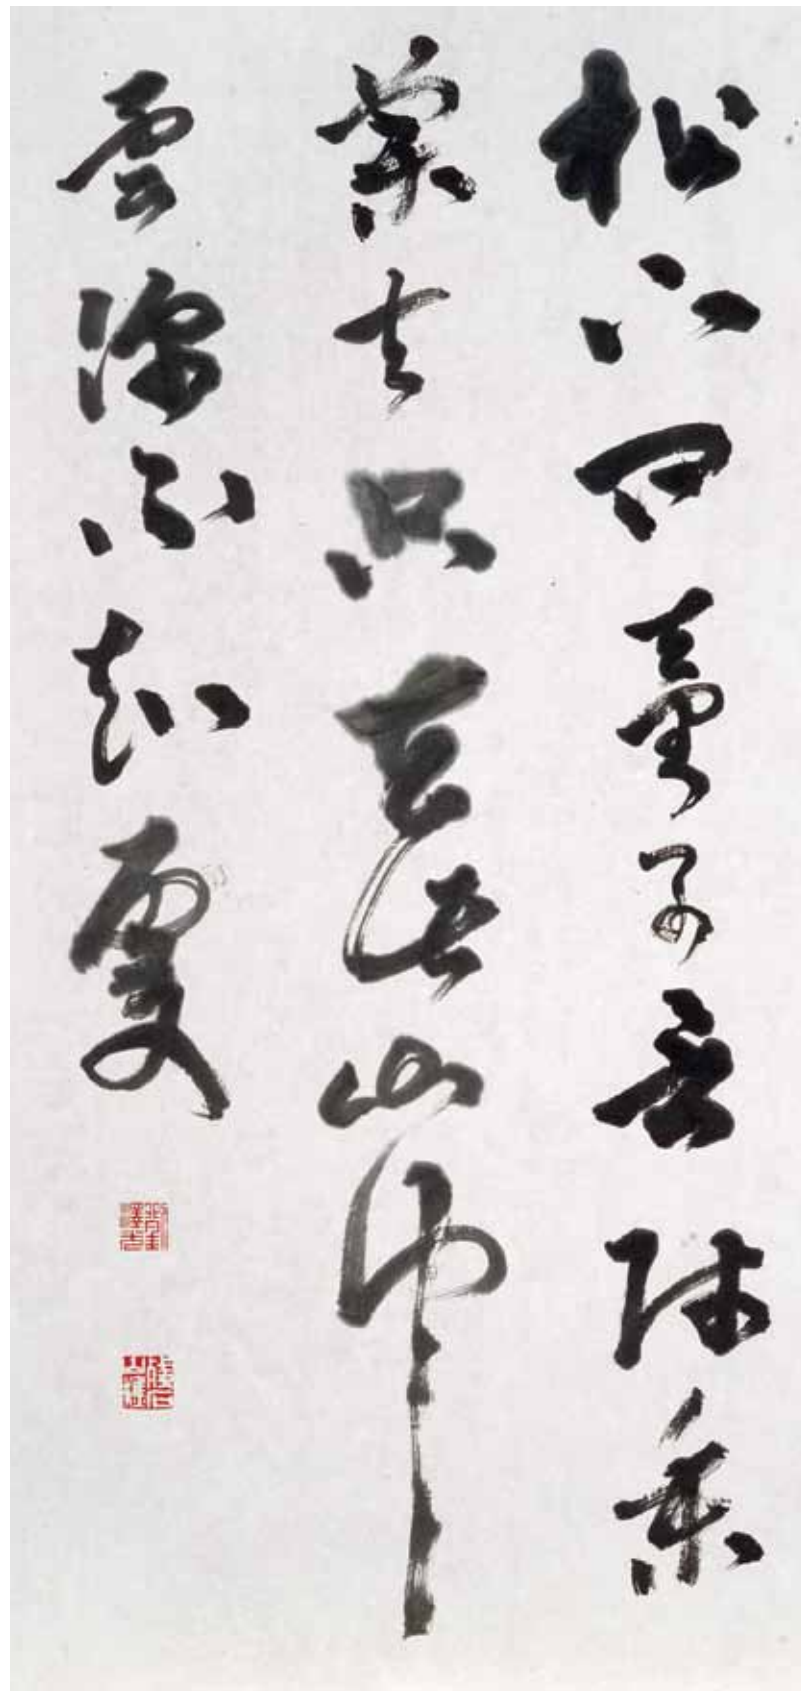 松下問童子言師采
藥去只在此山中
雲深不知處